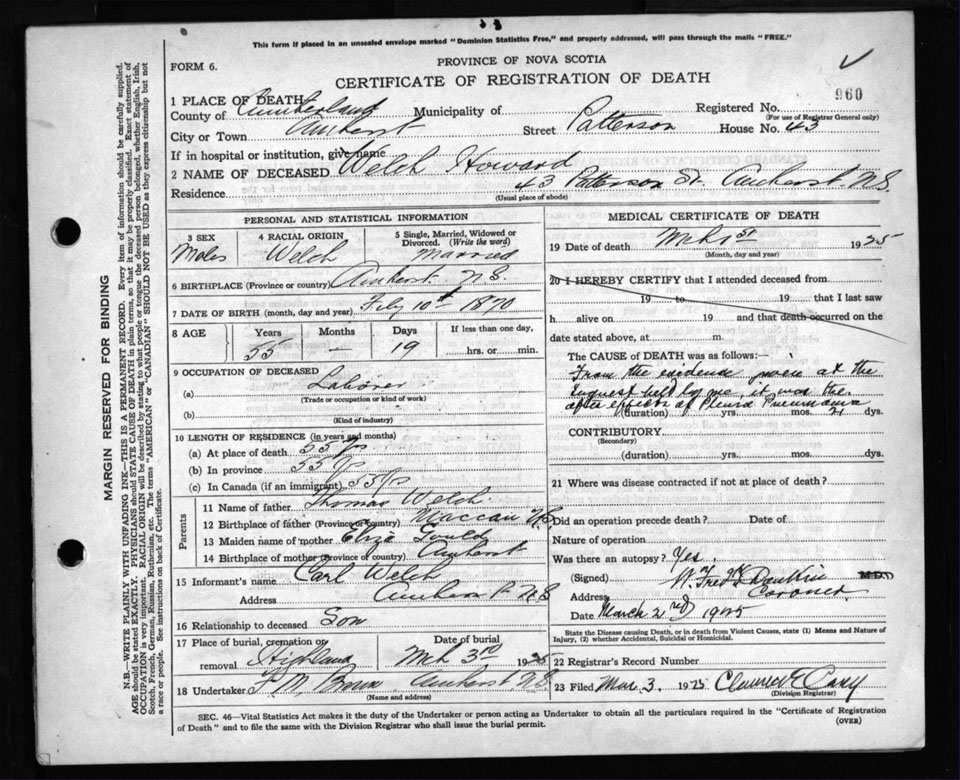 This form if placed in an unsealed envelope marked "Dominion Statistics Free," and properly addressed, will pass through the mails "FREE."
FORM 6.
PROVINCE OF NOVA SCOTIA
CERTIFICATE OF REGISTRATION OF DEATH
960
1 PLACE OF DEATH
County of Cumberland Municipality of Registered No.
(For use of Registrar General only)
City or Town Amherst Street Patterson House No. 43
If in hospital or institution, give name
2 NAME OF DECEASED Welch Howard
Residence 43 Patterson St. Amherst. N.S.
(Usual place of abode)
PERSONAL AND STATISTICAL INFORMATION
3 SEX 4 RACIAL ORIGIN 5 Single, Married, Widowed or Divorced. (Write the word)
Male Welch Married
6 BIRTHPLACE (Province or country) Amherst N.S.
7 DATE OF BIRTH (month, day and year) Feby 10th 1870
8 AGE Years Months Days If less than one day,
55 — 19 hrs. or min.
9 OCCUPATION OF DECEASED
(a) Laborer
(Trade or occupation or kind of work)
(b)
(Kind of industry)
10 LENGTH OF RESIDENCE (in years and months)
(a) At place of death 55 yrs
(b) In province 55 yrs
(c) In Canada (if an immigrant) 55 yrs
Parents
11 Name of father Thomas Welch
12 Birthplace of father (Province or country) Maccan N.S.
13 Maiden name of mother Eliza Gould
14 Birthplace of mother (Province or country) Amherst
15 Informant's name Carl Welch
Address Amherst N.S
16 Relationship to deceased Son
17 Place of burial, cremation or removal Highland Date of burial Mch 3rd 1925
18 Undertaker Amherst N.S
(Name and address)
MEDICAL CERTIFICATE OF DEATH
19 Date of death Mch 1st 1925
(Month, day and year)
20 I HEREBY CERTIFY that I attended deceased from
19 to 19 that I last saw
h alive on 19 and that death occurred on the
date stated above, at m.
The CAUSE OF DEATH was as follows:—
From the evidence given at the
inquest held by me, it was the
after effects of Pleura Pneumonia
(duration) yrs. mos. dys.
CONTRIBUTORY
(Secondary)
(duration) yrs. mos. dys.
21 Where was disease contracted if not at place of death?
Did an operation precede death? Date of
Nature of operation
Was there an autopsy? Yes.
(Signed) M.D.
Address Coroner
Date March 2nd 1925
State the Disease causing Death, or in death from Violent Causes, state (1) Means and Nature of Injury, (2) whether Accidental, Suicidal or Homicidal.
22 Registrar's Record Number
23 Filed Mar. 3. 1925
(Division Registrar)
SEC. 46—Vital Statistics Act makes it the duty of the Undertaker or person acting as Undertaker to obtain all the particulars required in the "Certificate of Registration
of Death" and to file the same with the Division Registrar who shall issue the burial permit.
(OVER)
MARGIN RESERVED FOR BINDING
N.B.—WRITE PLAINLY WITH UNFADING INK—THIS IS A PERMANENT RECORD. Every item of information should be carefully supplied.
AGE should be stated EXACTLY. PHYSICIANS should STATE CAUSE OF DEATH in plain terms, so that it may be properly classified. Exact statement of
OCCUPATION is very important. RACIAL ORIGIN will be described by stating to what people or tongue the deceased person belonged, whether English, Irish,
Scotch, French, German, Russian, Ruthenian, etc. The terms "AMERICAN" or "CANADIAN" SHOULD NOT BE USED as they express citizenship but not
a race or people. See instructions on back of Certificate.